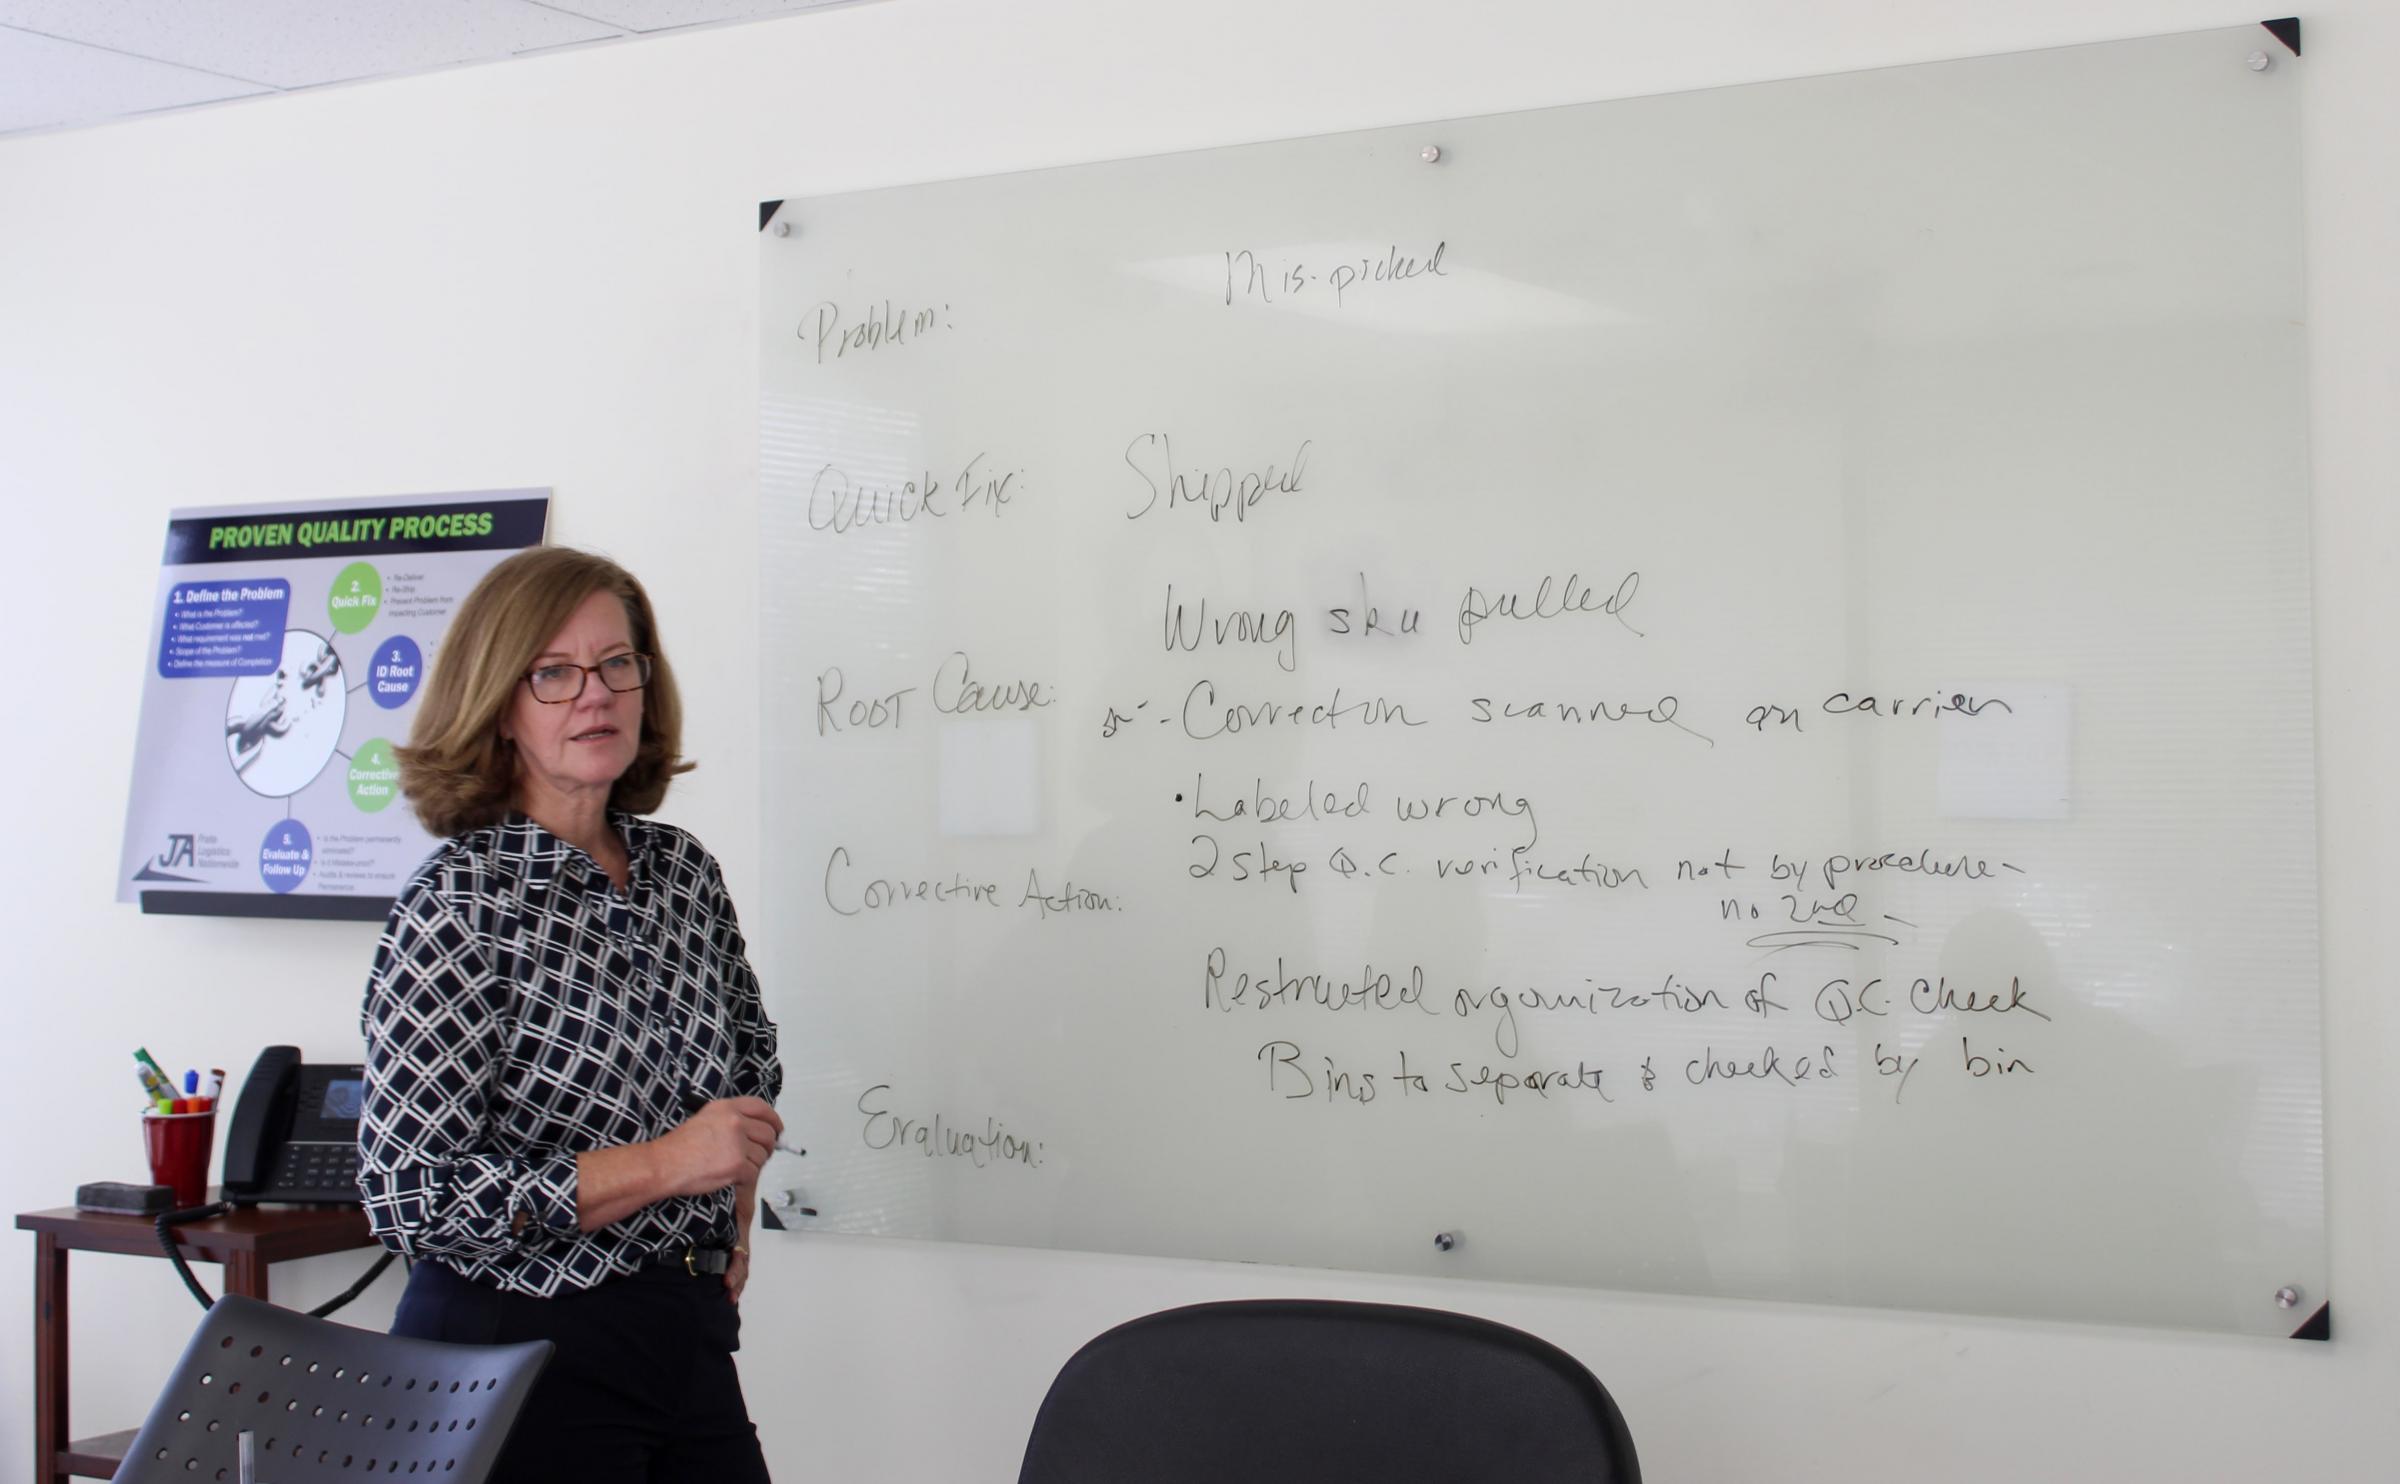 PROVEN QUALITY PROCESS
1. Define the Problem
• What is the Problem?
• What Customer is affected?
• What requirement was not met?
• Scope of the Problem?
• Define the measure of Completion
2.
Quick Fix
• Re-Deliver
• Re-Ship
• Prevent Problem from
impacting Customer
3.
ID Root
Cause
4.
Corrective
Action
5.
Evaluate &
Follow Up
• Is the Problem permanently
eliminated?
• Is it Mistake-proof?
• Audits & reviews to ensure
Permanence
JA
Frate
Logistics
Nationwide
Mis-picked
Problem:
Quick Fix: Shipped
Wrong sku pulled
Root Cause:
- Correct on scanned on carrier
• Labeled wrong
2 step Q.C. verification not by procedure -
no 2nd -
Corrective Action:
Restructed organization of Q.C. Check
Bins to separate & checked by bin
Evaluation: